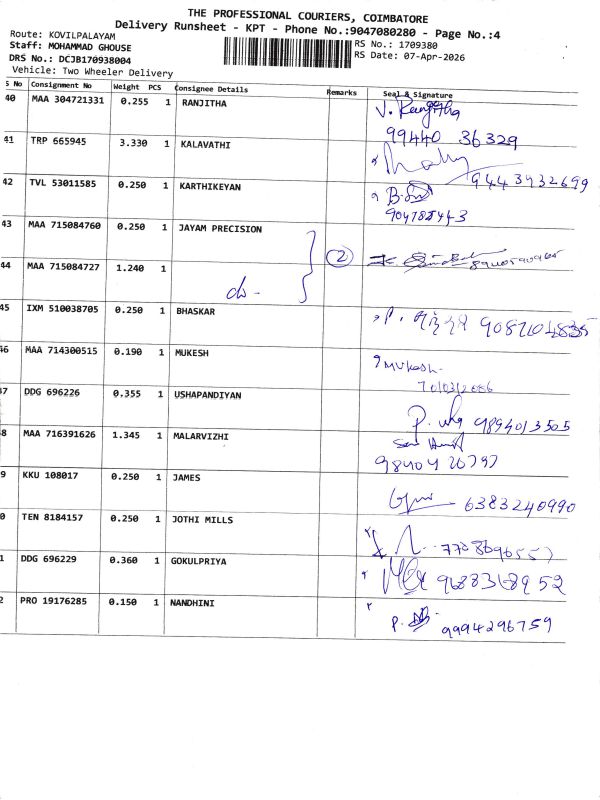 THE PROFESSIONAL COURIERS, COIMBATORE
Delivery Runsheet - KPT - Phone No.:9047080280 - Page No.:4
Route: KOVILPALAYAM
Staff: MOHAMMAD GHOUSE
RS No.: 1709380
DRS No.: DCJB170938004
RS Date: 07-Apr-2026
Vehicle: Two Wheeler Delivery
S No Consignment No Weight PCS Consignee Details Remarks Seal & Signature
40 MAA 304721331 0.255 1 RANJITHA V. Ranjitha
99440 36329
41 TRP 665945 3.330 1 KALAVATHI
9443932699
42 TVL 53011585 0.250 1 KARTHIKEYAN
43 MAA 715084760 0.250 1 JAYAM PRECISION
2
44 MAA 715084727 1.240 1 do -
45 IXM 510038705 0.250 1 BHASKAR
46 MAA 714300515 0.190 1 MUKESH Mukesh
47 DDG 696226 0.355 1 USHAPANDIYAN P. usha 9894013505
8 MAA 716391626 1.345 1 MALARVIZHI
98404 26797
9 KKU 108017 0.250 1 JAMES
6383240990
0 TEN 8184157 0.250 1 JOTHI MILLS
1 DDG 696229 0.360 1 GOKULPRIYA
9688368952
2 PRO 19176285 0.150 1 NANDHINI
P. 9994296759